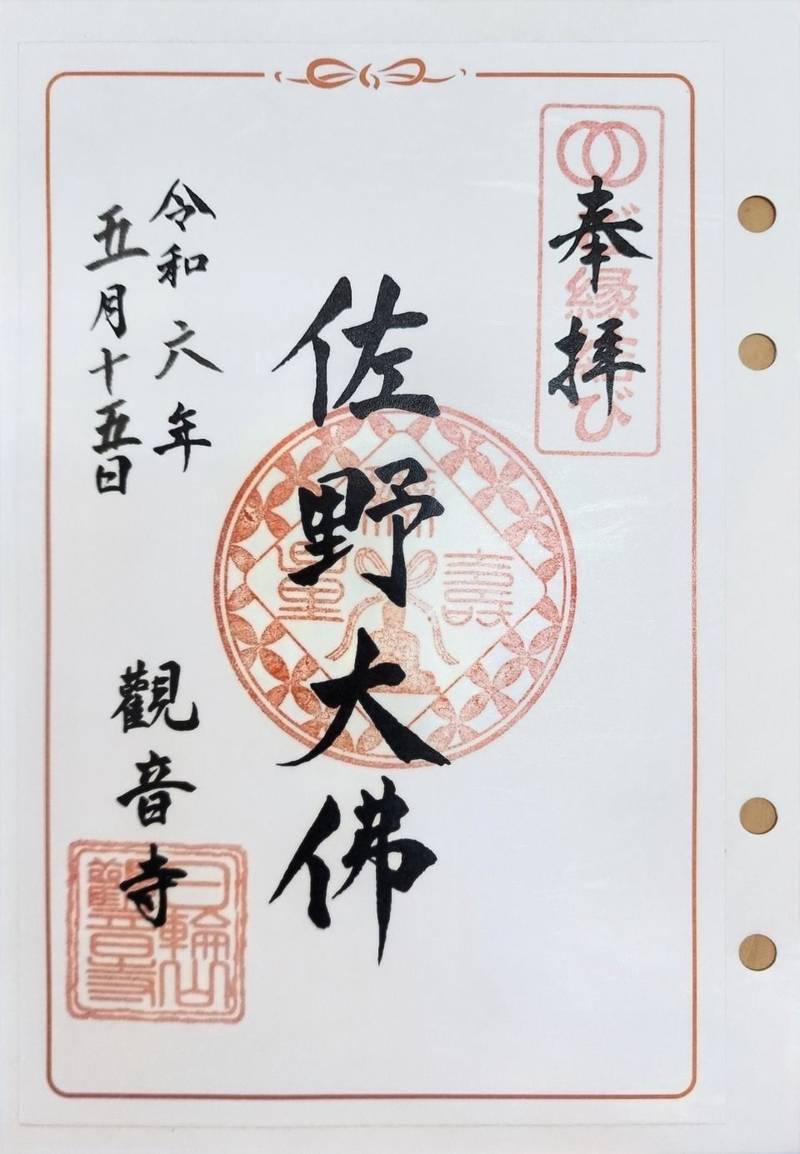 奉拝
ご縁結び
佐野大佛
福
壽
皇
令和六年
五月十五日
觀音寺
日輪山
觀音寺